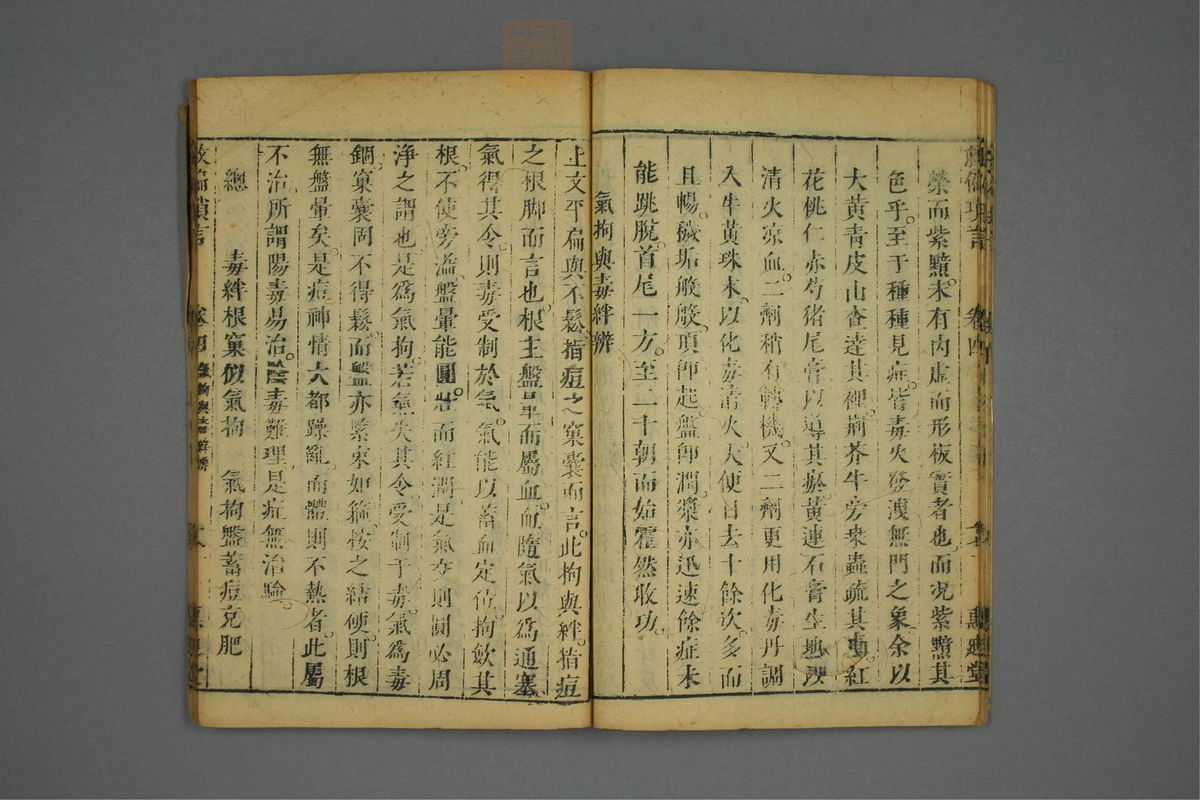 榮而紫黯未有內虛而形板實者也而況紫黯其
色乎至于種種見症皆毒火發洩無門之象余以
大黃青皮山查逹其裡荆芥牛旁衆蟲疏其肌紅
花桃仁赤芍猪尾膏以導其瘀黃連石膏生地
清火凉血二劑稍有轉機又二劑更用化毒丹調
入牛黃珠末以化毒清火大便日去十餘次多而
且暢穢垢般般頂即起盤即潤漿亦迅速餘症未
能跳脫首尾一方至二十朝而始霍然收功
氣拘與毒絆辨
上文平扁與不鬆指痘之窠囊而言此拘與絆指痘
之根脚而言也根主盤暈而屬血血隨氣以爲通塞
氣得其令則毒受制於氣氣能以蓄血定位拘歛其
根不使旁溢盤暈能圓壯而經潤是氣夺則圓必周
淨之謂也是爲氣拘若氣失其令受制于毒氣爲毒
錮窠囊固不得鬆而盤亦緊束如籬按之結硬則根
無盤暈矣是痘神情大都躁亂而體則不熱者此屬
不治所謂陽毒易治陰毒難理是症無治驗
總 毒絆根窠假氣拘 氣拘盤蓄痘克肥
救偏瑣言 卷四
惠迪堂